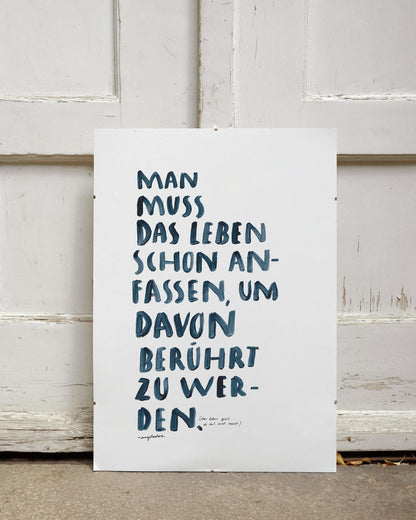 MAN
MUSS
DAS LEBEN
SCHON AN-
FASSEN, UM
DAVON
BERÜHRT
ZU WER-
DEN.